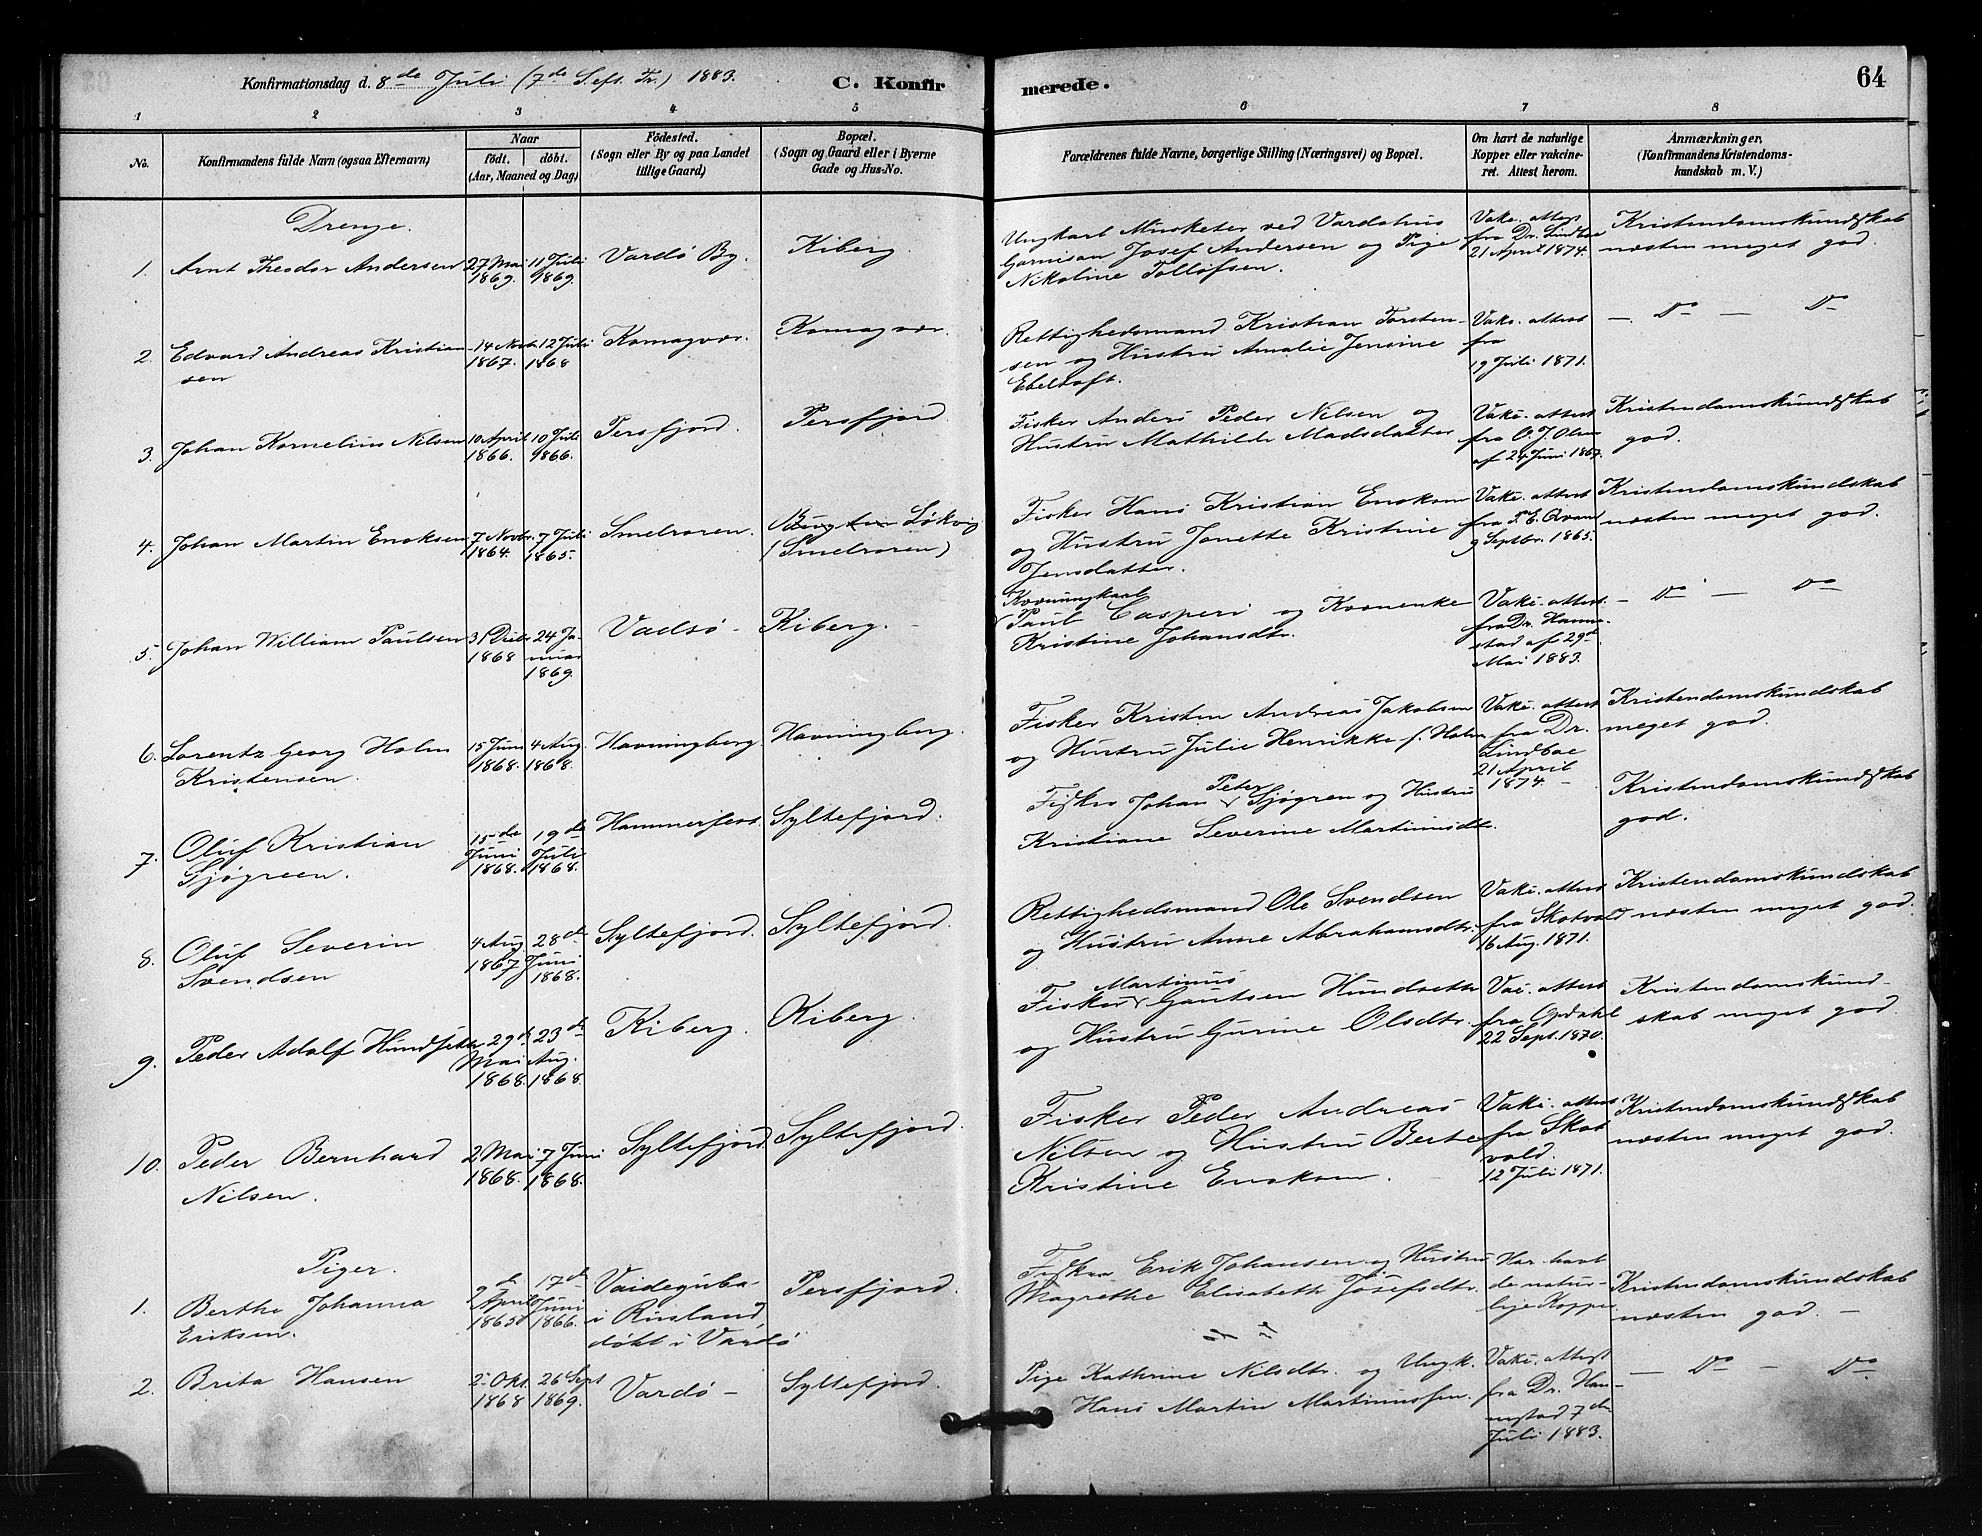 Konfirmationsdag d. 8de Juli (7de S. eft. Tr.) 1883.
C. Konfir
merede.
64
1 2 3 4 5 6 7 8
No.
Konfirmandens fulde Navn (ogsaa Efternavn)
Naar
født. døbt.
(Aar, Maaned og Dag)
Fødested.
(Sogn eller By og paa Landet
tillige Gaard)
Bopæl.
(Sogn og Gaard eller i Byerne
Gade og Hus-No.
Forældrenes fulde Navne, borgerlige Stilling (Næringsvei) og Bopæl.
Om havt de naturlige
Kopper eller vakcine-
ret. Attest herom.
Anmærkninger,
(Konfirmandens Kristendoms-
kundskab m. V.)
Drenge.
1. Arnt Theodor Andersen
27 Mai
1869.
11 Juli
1869.
Vardö By.
Kiberg
Ungkarl Musketer ved Vardöhus
Garnison Josef Andersen og Pige
Nikoline Tollofsen.
Vakc. attest
fra Dr. Lindboe
21 April 1874.
Kristendomskundskab
næsten meget god.
2. Edvard Andreas Kristian
sen
14 Novb.
1867.
12 Juli
1868
Komagvær.
Komagvær.
Rettighedsmand Kristian Torsten-
sen og Hustru Amalie Jensine
Ebeltoft.
Vakc. attest
fra
19 Juli 1871.
— Do — Do
3. Johan Kornelius Nilsen
10 April
1866.
10 Juli
1866.
Persfjord.
Persfjord
Fisker Anders Peder Nilsen og
Hustru Mathilde Madsdatter
Vakc. attest
fra O. J. Olsen
af 24 Juni 1867.
Kristendomskundskab
god.
4. Johan Martin Enoksen
7 Novbr.
1864.
7 Juli
1865.
Smelroren.
Løkvig
(Smelroren)
Fisker Hans Kristian Enoksen
og Hustru Jonette Kristine
Jensdatter.
Vakc. attest
fra
9 Septbr. 1865.
Kristendomskundskab
næsten meget god.
5. Johan William Paulsen
31 Debr
1868
24 Ja-
nuar
1869.
Vadsö -
Kiberg. -
Kvæningkarl
Paul Casperi og Kvænenke
Kristine Johansdtr.
Vakc. attest
fra Dr. Hanne-
stad af 29de
Mai 1883.
— Do — Do
6. Lorentz Georg Holm
Kristensen.
15 Juni
1868.
4 Aug.
1868.
Havningberg.
Havningberg.
Fisker Kristen Andreas Jakobsen
og Hustru Julie Henrikke f. Holm
Vakc. attest
fra Dr.
Lindboe
21 April
1874. -
Kristendomskundskab
meget god.
7. Oluf Kristian
Sjögreen.
15de
Juni
1868.
19de
Juli
1868.
Hammerfest.
Syltefjord.
Peter
Fisker Johan Sjögren og Hustru
Kristiane Severine Martinusdtr.
Kristendomskundskab
god.
8. Oluf Severin
Svendsen
4 Aug.
1867
28de
Juni
1868.
Syltefjord.
Syltefjord.
Rettighedsmand Ole Svendsen
og Hustru Anne Abrahamsdtr.
Vakc. attest
fra Skotvold
16 Aug. 1871.
Kristendomskundskab
næsten meget god.
9. Peder Adolf Hundsetr
29de
Mai
1868.
23de
Aug.
1868.
Kiberg.
Kiberg.
Martinus
Fisker Gautsen Hundsetr
og Hustru Gurine Olsdtr.
Vac. attest
fra Opdahl
22 Sept. 1870.
Kristendomskund-
skab meget god.
10. Peder Bernhard
Nilsen.
2 Mai
1868.
7 Juni
1868.
Syltefjord
Syltefjord.
Fisker Peder Andreas
Nilsen og Hustru Berte
Kristine Enoksen.
Vakc. attest
fra Skot
vold.
12 Juli 1871.
Kristendomskundskab
næsten meget god.
Piger.
1. Berthe Johanna
Eriksen.
2de
April
1865
17de
Juni
1866.
Vaideguba-
i Rusland,
døbt i Vardö
Persfjord.
Fisker Erik Johansen og Hustru
Magrethe Elisabeth Josefsdtr.
Har havt
de natur-
lige Kopper
Kristendomskundskab
næsten god. -
2. Brita Hansen
2 Okt.
1868
26 Sept
1869.
Vardö -
Syltefjord.
Pige Kathrine Nilsdtr. og Ungk.
Hans Martin Martinussen.
Vakc. attest
fra Dr. Han-
nestad 7de
Juli 1883.
— Do — Do